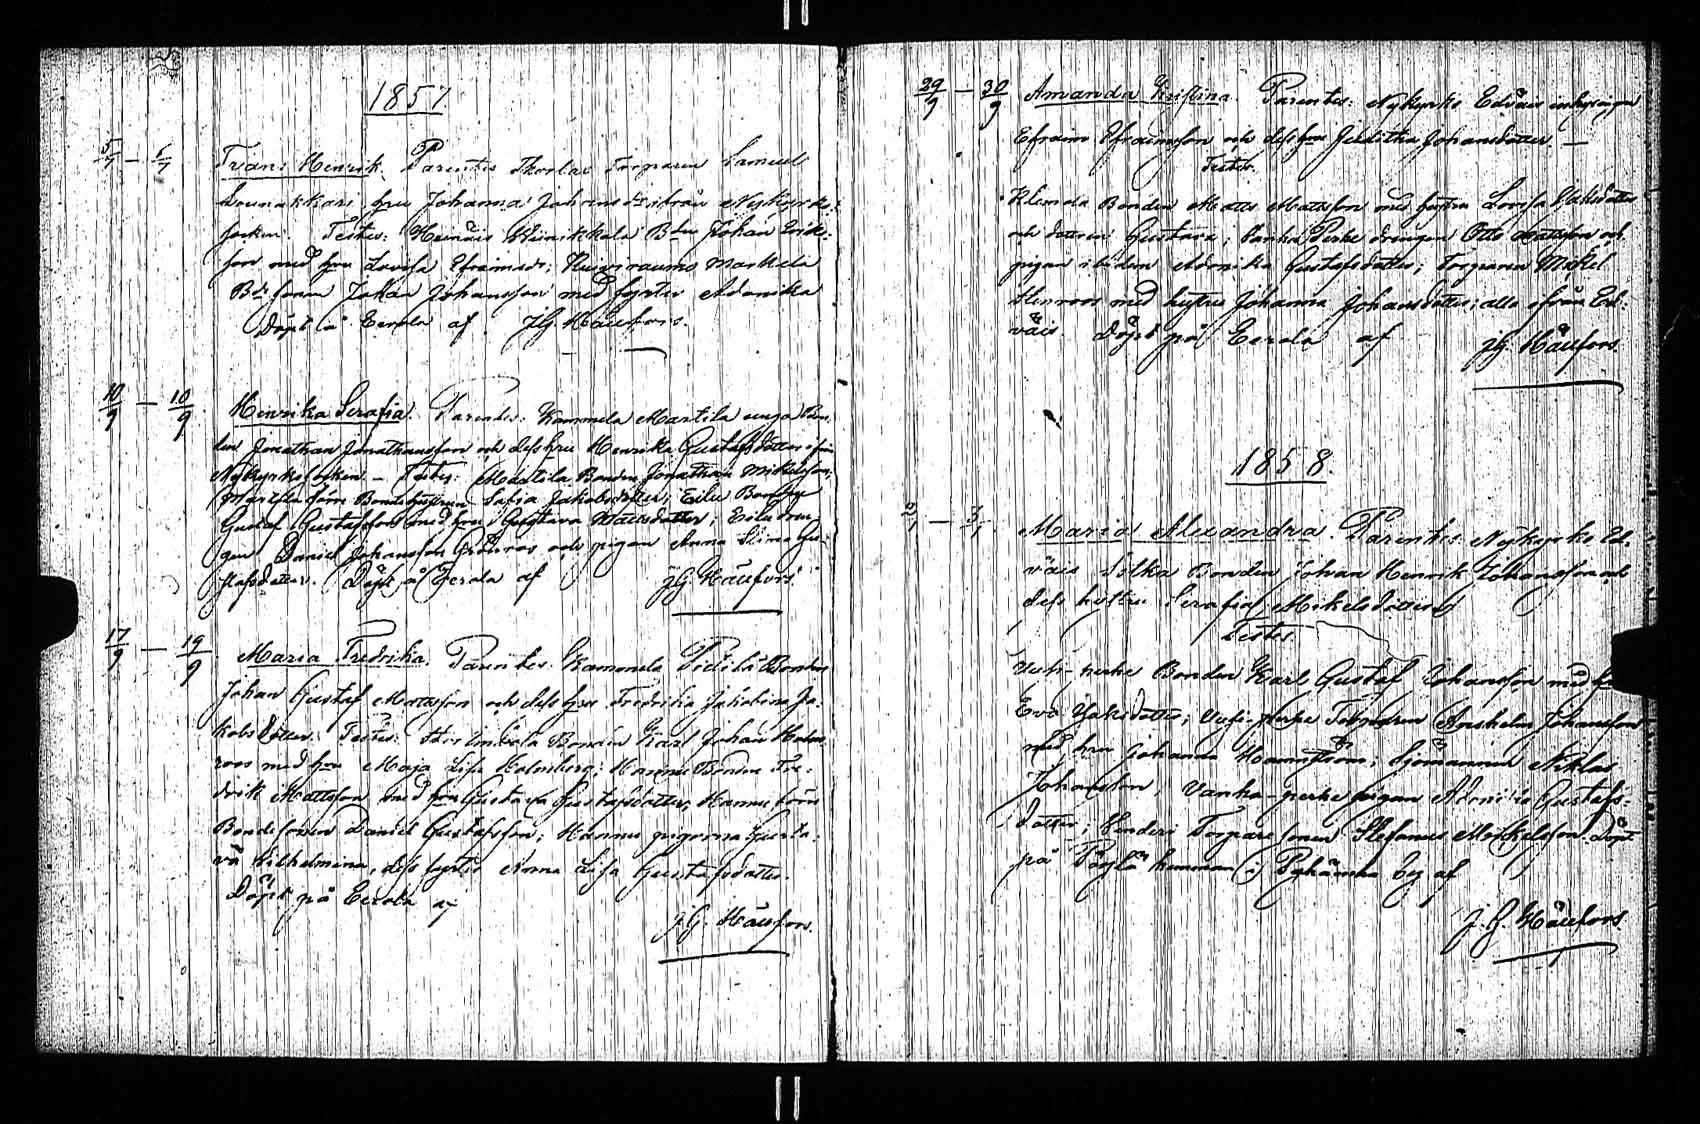 1857
5/7 — 6/7
Frans Henrik. Parentes Torparen Samuel
hru Johanna Johansdr ifrån Nykyrko
socken. Testes: Heinäis Bdn Johan Erik-
son med hru Lovisa Efraimsdr; Markela
Bdesonen Johan Johansson med syster Adonika
Döpt å Eerola af J.G. Häufors.
10/9 — 10/9
Henrika Serafia. Parentes: Kammela Martila unga Bon-
den Jonathan Jonathansson och dess hru Henrika Gustafsdotter ifrån
Nykyrko socken. — Testes: Martila Bonden Jonathan Mikelsson,
Bondehustrun Safia Jakobsdotter; Eilu Bonden
Gustaf Gustafsson med hru Gustava Mattsdotter; Eilu dren-
gen Daniel Johansson och pigan Anna Stina Gu-
stafsdotter. Döpt å Eerola af J.G. Häufors.
17/9 — 19/9
Maria Fredrika. Parentes: Kammela Bonden
Johan Gustaf Mattsson och dess hru Fredrika Jakobina Ja-
kobsdotter. Testes: Bonden Karl Johan Holm-
roos med hru Maja Lisa Holmberg; Hannu Bonden Fre-
drik Mattsson med hru Gustava Gustafsdotter; Hannu förre
Bondesonen Daniel Gustafsson; Hannu pigorna Gusta-
va Wilhelmina, dess syster Anna Lisa Gustafsdotter.
Döpt på Eerola af
J.G. Häufors.
29/9 — 30/9
Amanda Kristina. Parentes: Nykyrko Edväis inhysingen
Efraim Efraimsson och dess hru Juditha Johansdotter. —
Testes.
Klemola Bonden Matts Mattsson med hustru Lovisa Isaksdotter
och dottren Gustava; Vanha Perke drengen Otto Mattsson och
pigan ibidem Adonika Gustafsdotter; Torparen Mikel
Stenroos med hustru Johanna Johansdotter; alla ifrån Ed-
väis. Döpt på Eerola af J.G. Häufors.
1858.
Maria Alexandra. Parentes: Nykyrko Ed-
väis Sitka Bonden Johan Henrik Johansson och
dess hustru Serafia Mikelsdotter
Testes.
Uusi-perke Bonden Karl Gustaf Johansson med hru
Eva Isaksdotter; Uusi-perke Torparen Anshelm Johansson
med hru Johanna; Sjömannen Niklas
Johansson, Vanha-perke pigan Adonika Gustafs-
dotter; Torpare sonen Stefanus Mickelsson. Döpt
på hemman i Pyhämaa by af
J.G. Häufors.